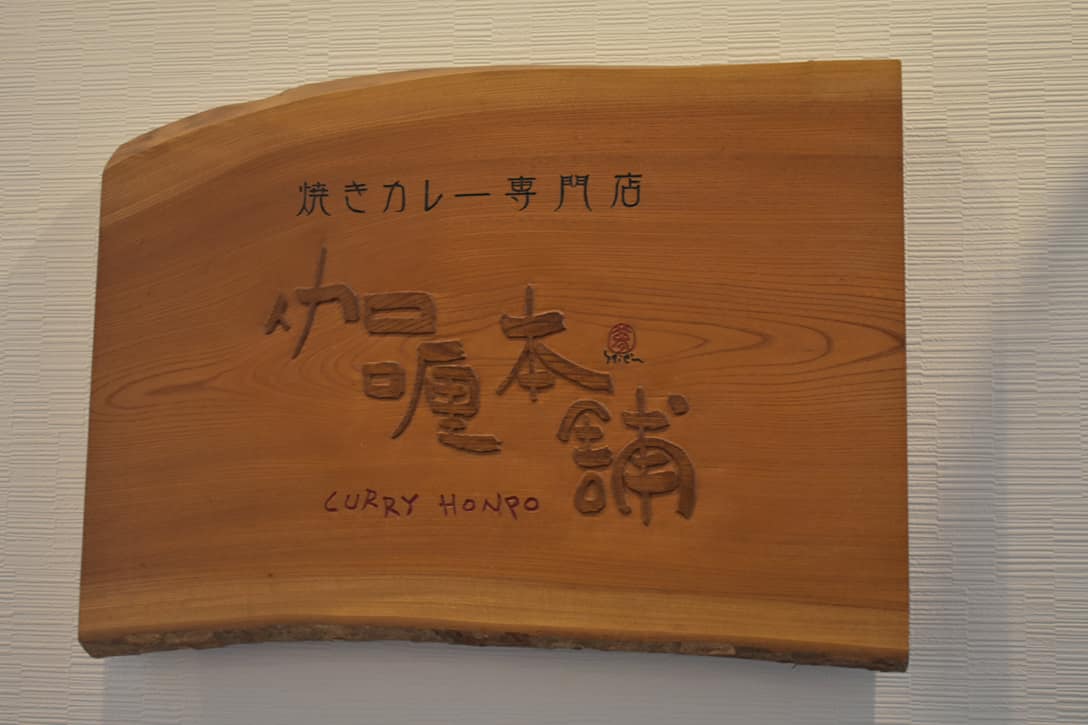 焼きカレー専門店
伽哩本舗
CURRY HONPO